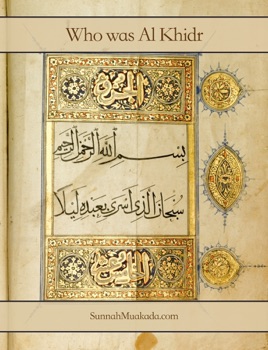 Who was Al Khidr
بسم الله الرحمن الرحيم
سبحان الذي أسرى بعبده ليلا
SunnahMuakada.com